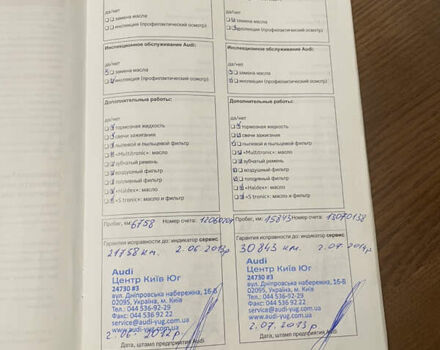 да/нет
замена масла
инспекция (профилактический осмотр)
Инспекционное обслуживание Audi:
да/нет
замена масла
инспекция (профилактический осмотр)
Дополнительные работы:
да/нет
тормозная жидкость
свечи зажигания
пылевой и пыльцевой фильтр
«Multitronic»: масло
зубчатый ремень
воздушный фильтр
топливный фильтр
«Haldex»: масло
«S tronic»: масло и фильтр
Пробег, км: 6758 Номер счета:
Гарантия исправности до: индикатор сервис
21758 км. 2.06.2013г
Audi
Центр Київ Юг
24730 #3
вул. Дніпровська набережна, 16-В
02095, Україна, м. Київ
Тел: 044 536-92-29
Факс: 044 536 92 22
service@audi-yug.com.ua
www.audi-yug.com.ua
Дата, штамп предприятия Audi
да/нет
замена масла
инспекция (профилактический осмотр)
Инспекционное обслуживание Audi:
да/нет
замена масла
инспекция (профилактический осмотр)
Дополнительные работы:
да/нет
тормозная жидкость
свечи зажигания
пылевой и пыльцевой фильтр
«Multitronic»: масло
зубчатый ремень
воздушный фильтр
топливный фильтр
«Haldex»: масло
«S tronic»: масло и фильтр
Пробег, км: 15843 Номер счета: 13070138
Гарантия исправности до: индикатор сервис
30843 км. 2.07.2014г.
Audi
Центр Київ Юг
24730 #3
вул. Дніпровська набережна, 16-В
02095, Україна, м. Київ
Тел: 044 536-92-29
Факс: 044 536 92 22
service@audi-yug.com.ua
www.audi-yug.com.ua
2.07.2013 р
Дата, штамп предприятия Audi